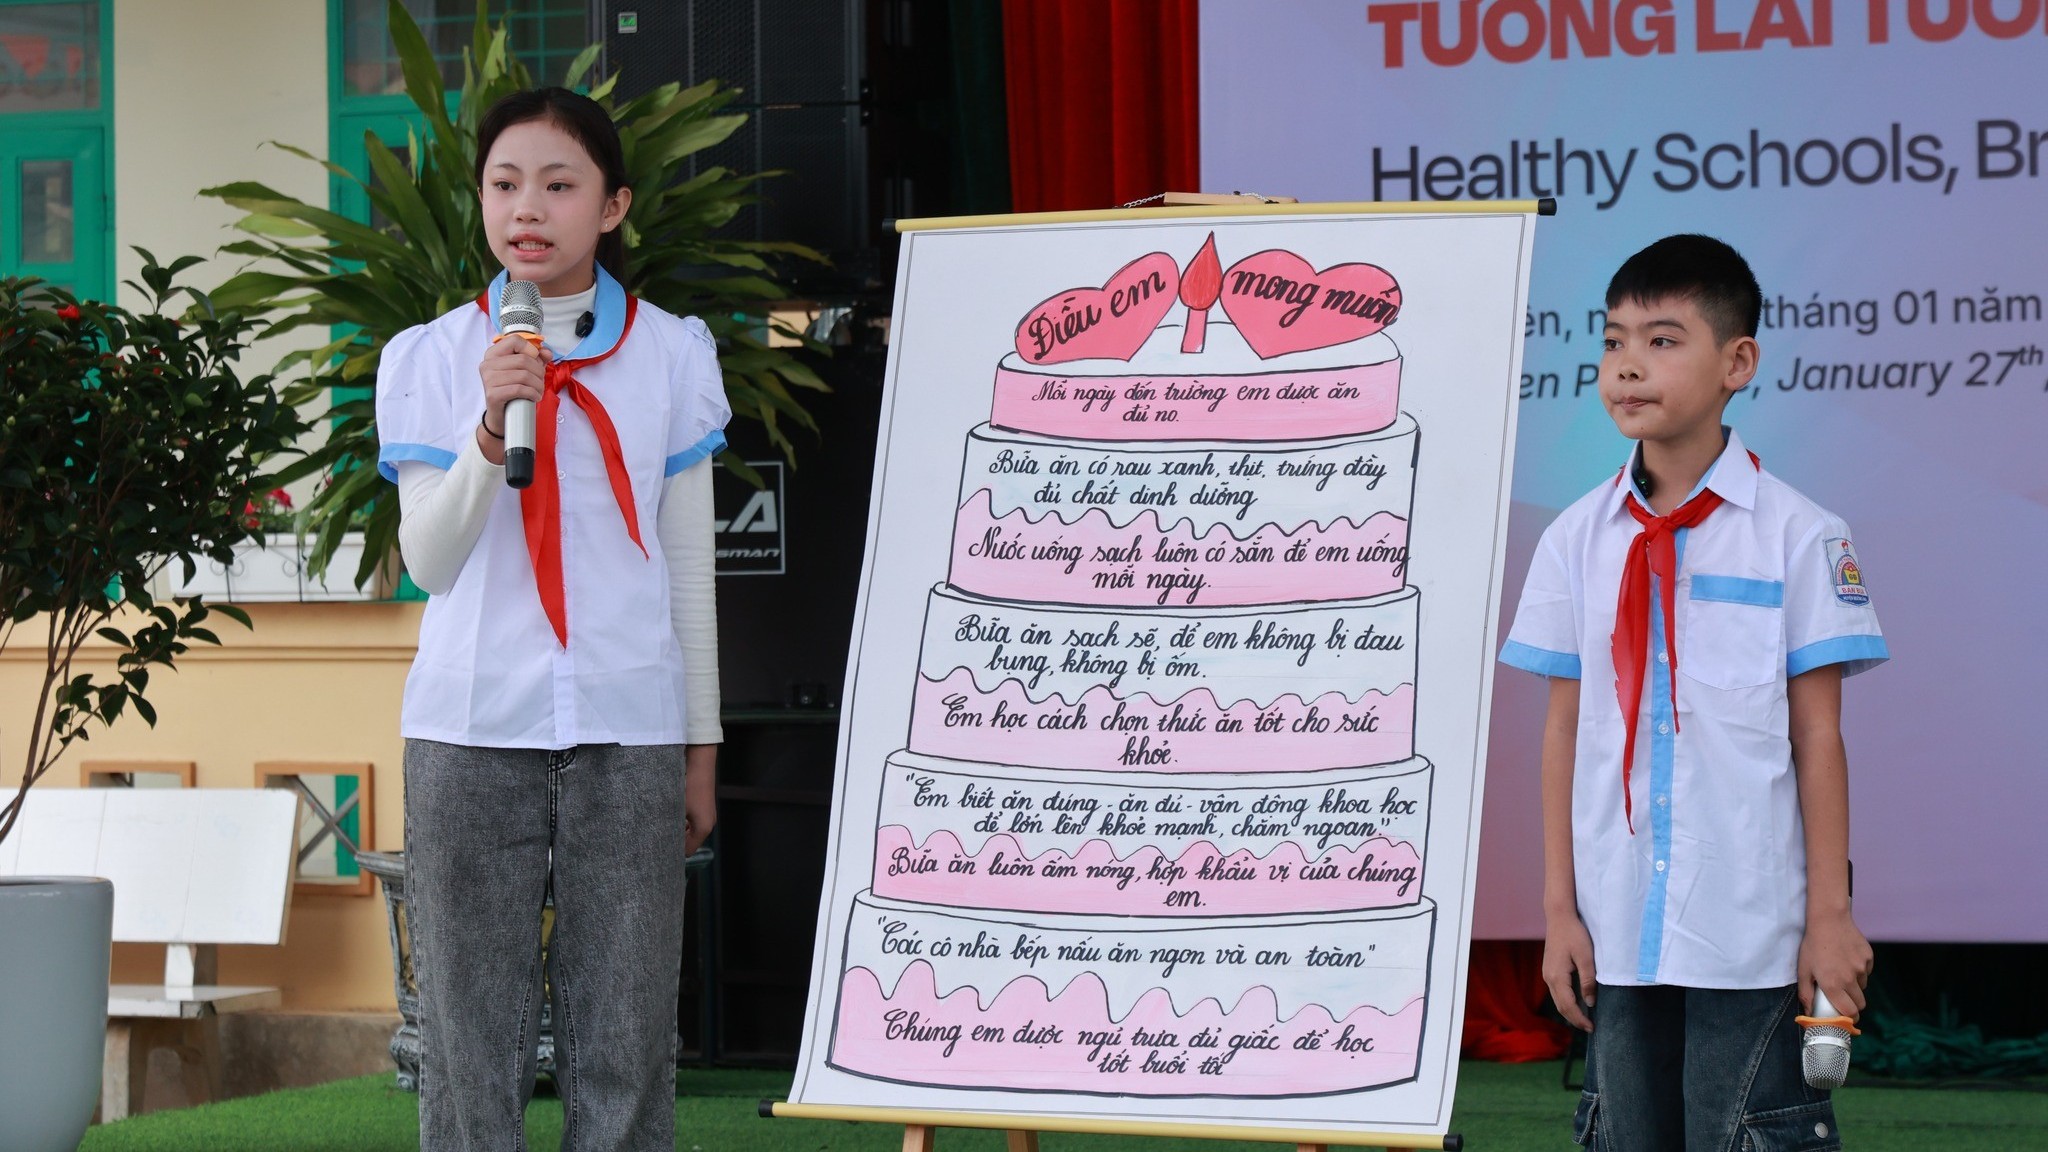 TƯƠNG LAI
Healthy Schools,
tháng 01 năm
January 27th,
Điều em
mong muốn
Mỗi ngày đến trường em được ăn
đủ no.
Bữa ăn có rau xanh, thịt, trứng đầy
đủ chất dinh dưỡng
Nước uống sạch luôn có sẵn để em uống
mỗi ngày.
Bữa ăn sạch sẽ, để em không bị đau
bụng, không bị ốm.
Em học cách chọn thức ăn tốt cho sức
khỏe.
"Em biết ăn đúng - ăn đủ - vận động khoa học
để lớn lên khỏe mạnh, chăm ngoan."
Bữa ăn luôn ấm nóng, hợp khẩu vị của chúng
em.
"Các cô nhà bếp nấu ăn ngon và an toàn"
Chúng em được ngủ trưa đủ giấc để học
tốt buổi tối